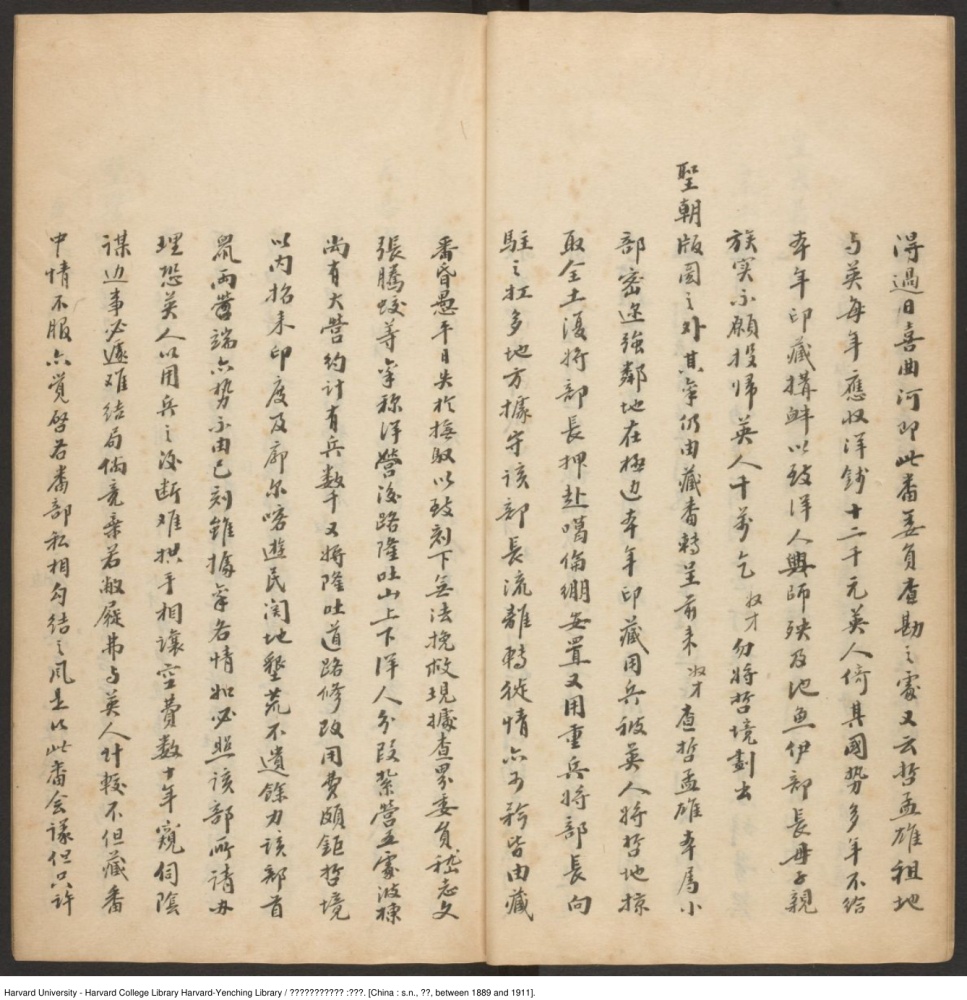 得過日喜曲河即此番委員查勘之處又云哲孟雄租地
与英每年應收洋錢十二千元英人倚其國勢多年不給
本年印藏搆衅以致洋人興師殃及池魚伊部長母子親
族实不願投归英人千万乞奴才勿将哲境劃出
聖朝版圖之外其稟仍由藏番轉呈前来奴才查哲孟雄本属小
部密迩強鄰地在極边本年印藏用兵被英人将哲地掠
取全土復将部長押赴噶倫绷安置又用重兵将部長向
駐之扛多地方據守該部長流離轉徙情亦可矜皆由藏
番昏愚平日失於撫馭以致刻下無法挽救現據查界委員嵇志文
張騰蛟等稟称洋營後路隆吐山上下洋人分段紮營五處波棟
尚有大營約計有兵数千又将隆吐道路修改用費頗鉅哲境
以内招来印度及廓尔喀遊民闲地墾荒不遺餘力該部首
鼠两耑端亦势不由己刻雖據稟各情如必照該部所請办
理恐英人以用兵之後断难拱手相讓空費数十年窺伺陰
謀边事必遽难结局倘竟棄若敝屣弗与英人计較不但藏番
中情不服亦覺啓各番部私相勾结之风是以此番会議但只許
Harvard University - Harvard College Library Harvard-Yenching Library / ??????????? :???. [China : s.n., ??, between 1889 and 1911].